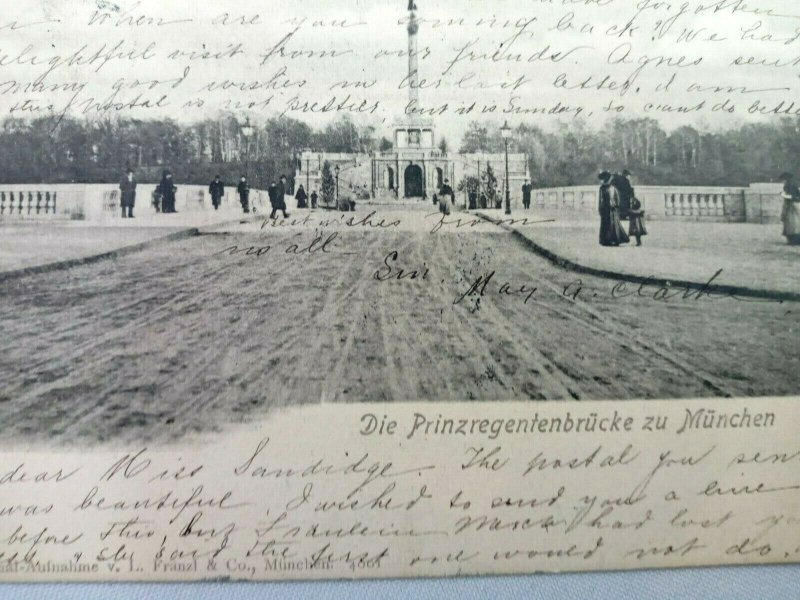 forgotten
when are you coming back? We had
delightful visit from our friends. Agnes sent
many good wishes in her last letter. I am
this postal is not prettier, but it is Sunday, so I can't do better
Best wishes from
us all
Sin.
May A. Clarke
Die Prinzregentenbrücke zu München
dear Miss Sandidge. The postal you sen
was beautiful. I wished to send you a line
before this, but Fräulein had lost yo
She said the first one would not do.
al-Aufnahme v. L. Fränzl & Co., München. 4661